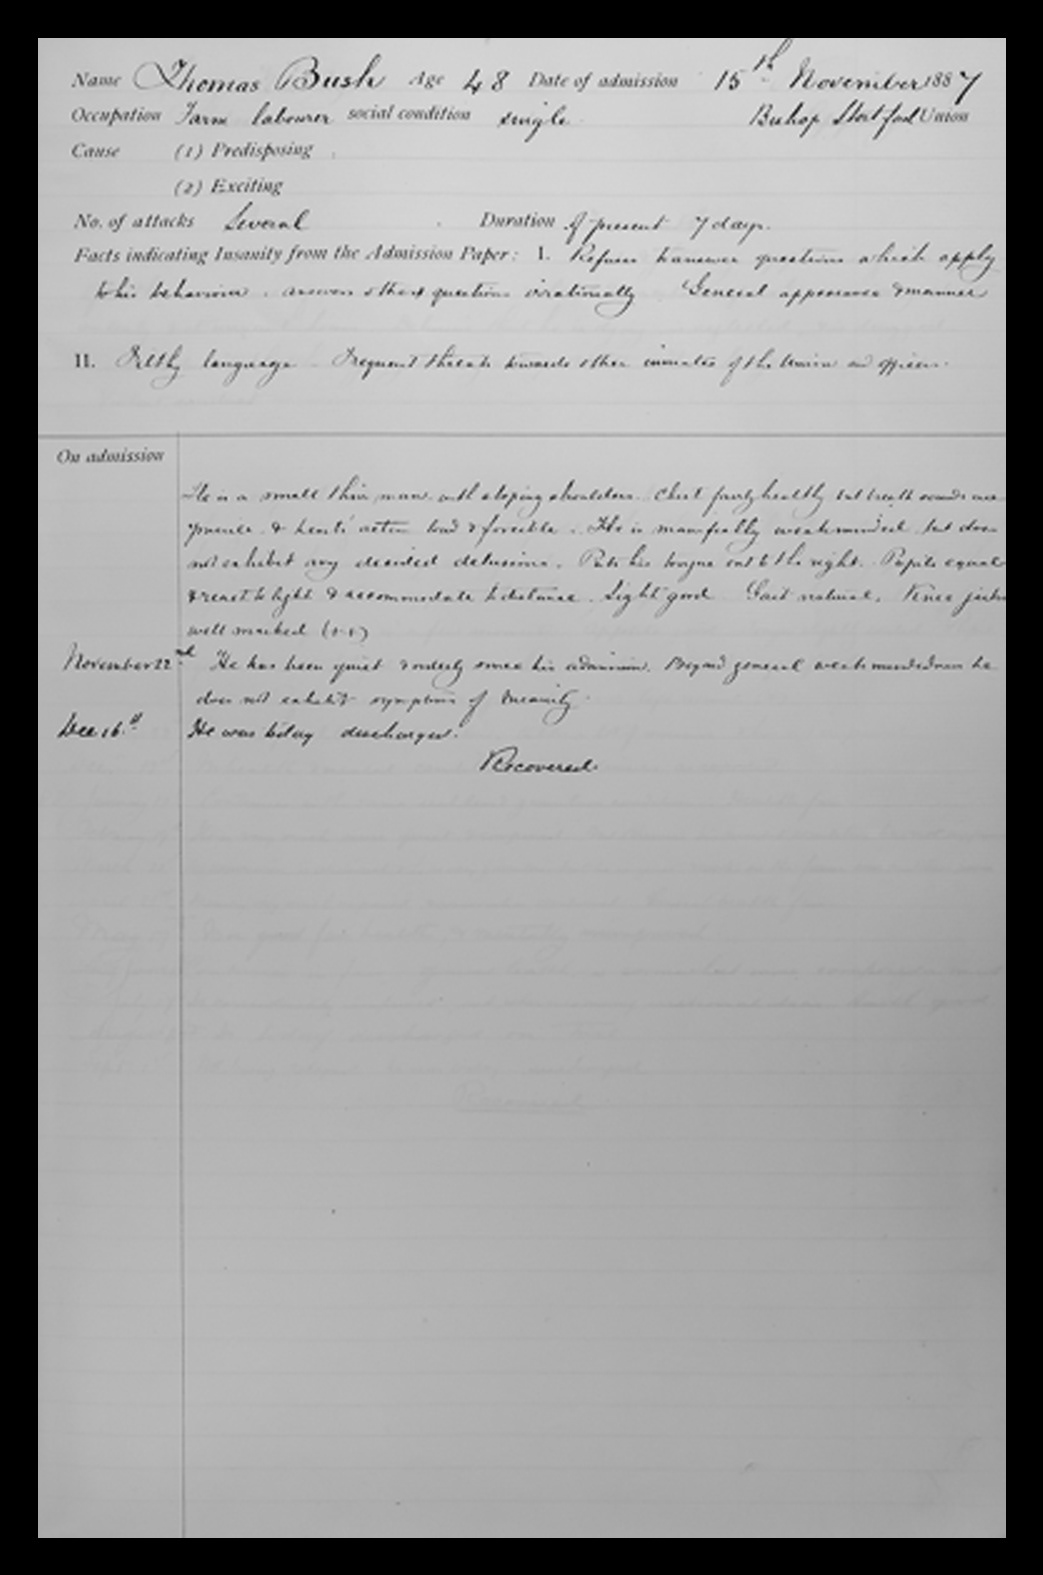 Name Thomas Bush Age 48 Date of admission 15th November 1887
Occupation Farm labourer social condition single Bishop Stortford Union
Cause (1) Predisposing
(2) Exciting
No. of attacks Several Duration of present 7 days.
Facts indicating Insanity from the Admission Paper: I. Refuses to answer questions which apply
to his behaviour. answers other questions irrationally General appearance & manner
II. Filthy language Frequent threats towards other inmates of the Union and officers.
On admission
He is a small thin man with sloping shoulders. Chest fairly healthy but breath sounds are
puerile & hearts action loud & forcible. He is manifestly weakminded but does
not exhibit any decided delusions. Puts his tongue out to the right. Pupils equal
& react to light & accommodate to distance. Sight good Gait natural. Knee jerks
well marked
November 22nd He has been quiet & orderly since his admission. Beyond general weakmindedness he
does not exhibit symptoms of Insanity.
Dec 16th He was today discharged.
Recovered.